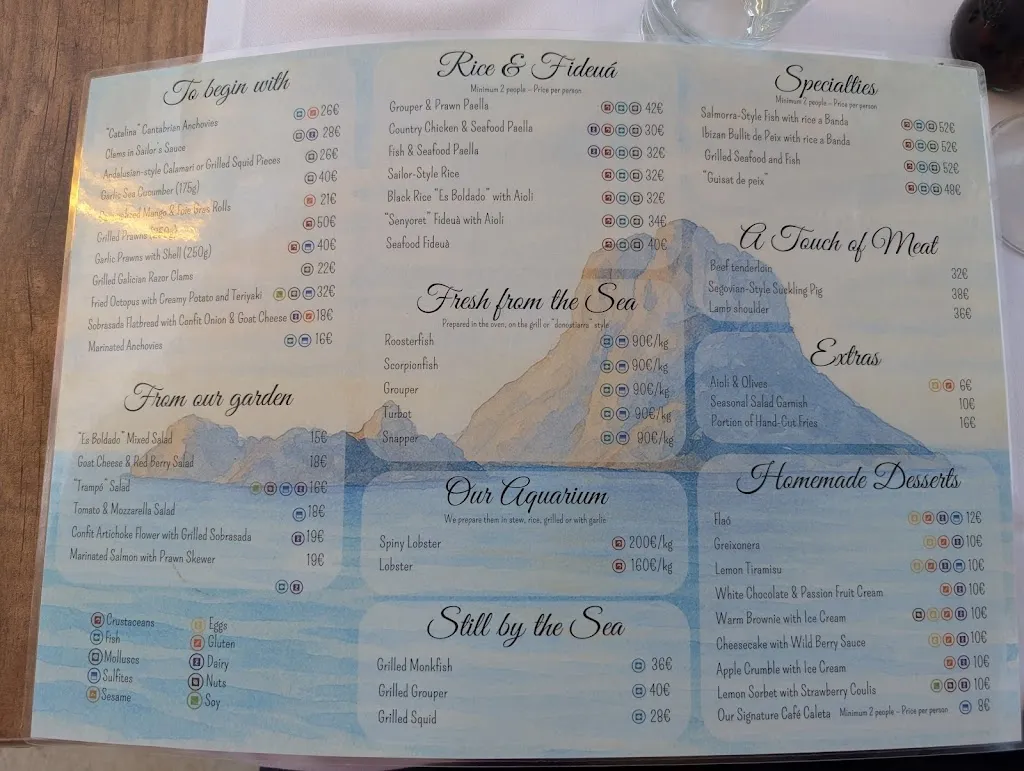 To begin with
"Catalina" Cantabrian Anchovies 26€
Clams in Sailor's Sauce 28€
Andalusian-style Calamari or Grilled Squid Pieces 26€
Garlic Sea Cucumber (175g) 40€
Mango & Foie Gras Rolls 21€
Grilled Prawns 50€
Garlic Prawns with Shell (250g) 40€
Grilled Galician Razor Clams 22€
Fried Octopus with Creamy Potato and Teriyaki 32€
Sobrasada Flatbread with Confit Onion & Goat Cheese 18€
Marinated Anchovies 16€
From our garden
"Es Boldado" Mixed Salad 15€
Goat Cheese & Red Berry Salad 18€
"Trampó" Salad 16€
Tomato & Mozzarella Salad 18€
Confit Artichoke Flower with Grilled Sobrasada 19€
Marinated Salmon with Prawn Skewer 19€
Crustaceans
Fish
Molluscs
Sulfites
Sesame
Eggs
Gluten
Dairy
Nuts
Soy
Rice & Fideuá
Minimum 2 people – Price per person
Grouper & Prawn Paella 42€
Country Chicken & Seafood Paella 30€
Fish & Seafood Paella 32€
Sailor-Style Rice 32€
Black Rice "Es Boldado" with Aioli 32€
"Senyoret" Fideuà with Aioli 34€
Seafood Fideuà 40€
Fresh from the Sea
Prepared in the oven, on the grill or "donostiarra" style
Roosterfish 90€/kg
Scorpionfish 90€/kg
Grouper 90€/kg
Turbot 90€/kg
Snapper 90€/kg
Our Aquarium
We prepare them in stew, rice, grilled or with garlic
Spiny Lobster 200€/kg
Lobster 160€/kg
Still by the Sea
Grilled Monkfish 36€
Grilled Grouper 40€
Grilled Squid 28€
Specialties
Minimum 2 people – Price per person
Salmorra-Style Fish with rice a Banda 52€
Ibizan Bullit de Peix with rice a Banda 52€
Grilled Seafood and Fish 52€
"Guisat de peix" 48€
A Touch of Meat
Beef tenderloin 32€
Segovian-Style Suckling Pig 38€
Lamb shoulder 36€
Extras
Aioli & Olives 6€
Seasonal Salad Garnish 10€
Portion of Hand-Cut Fries 16€
Homemade Desserts
Flaó 12€
Greixonera 10€
Lemon Tiramisu 10€
White Chocolate & Passion Fruit Cream 10€
Warm Brownie with Ice Cream 10€
Cheesecake with Wild Berry Sauce 10€
Apple Crumble with Ice Cream 10€
Lemon Sorbet with Strawberry Coulis 10€
Our Signature Café Caleta Minimum 2 people – Price per person 8€